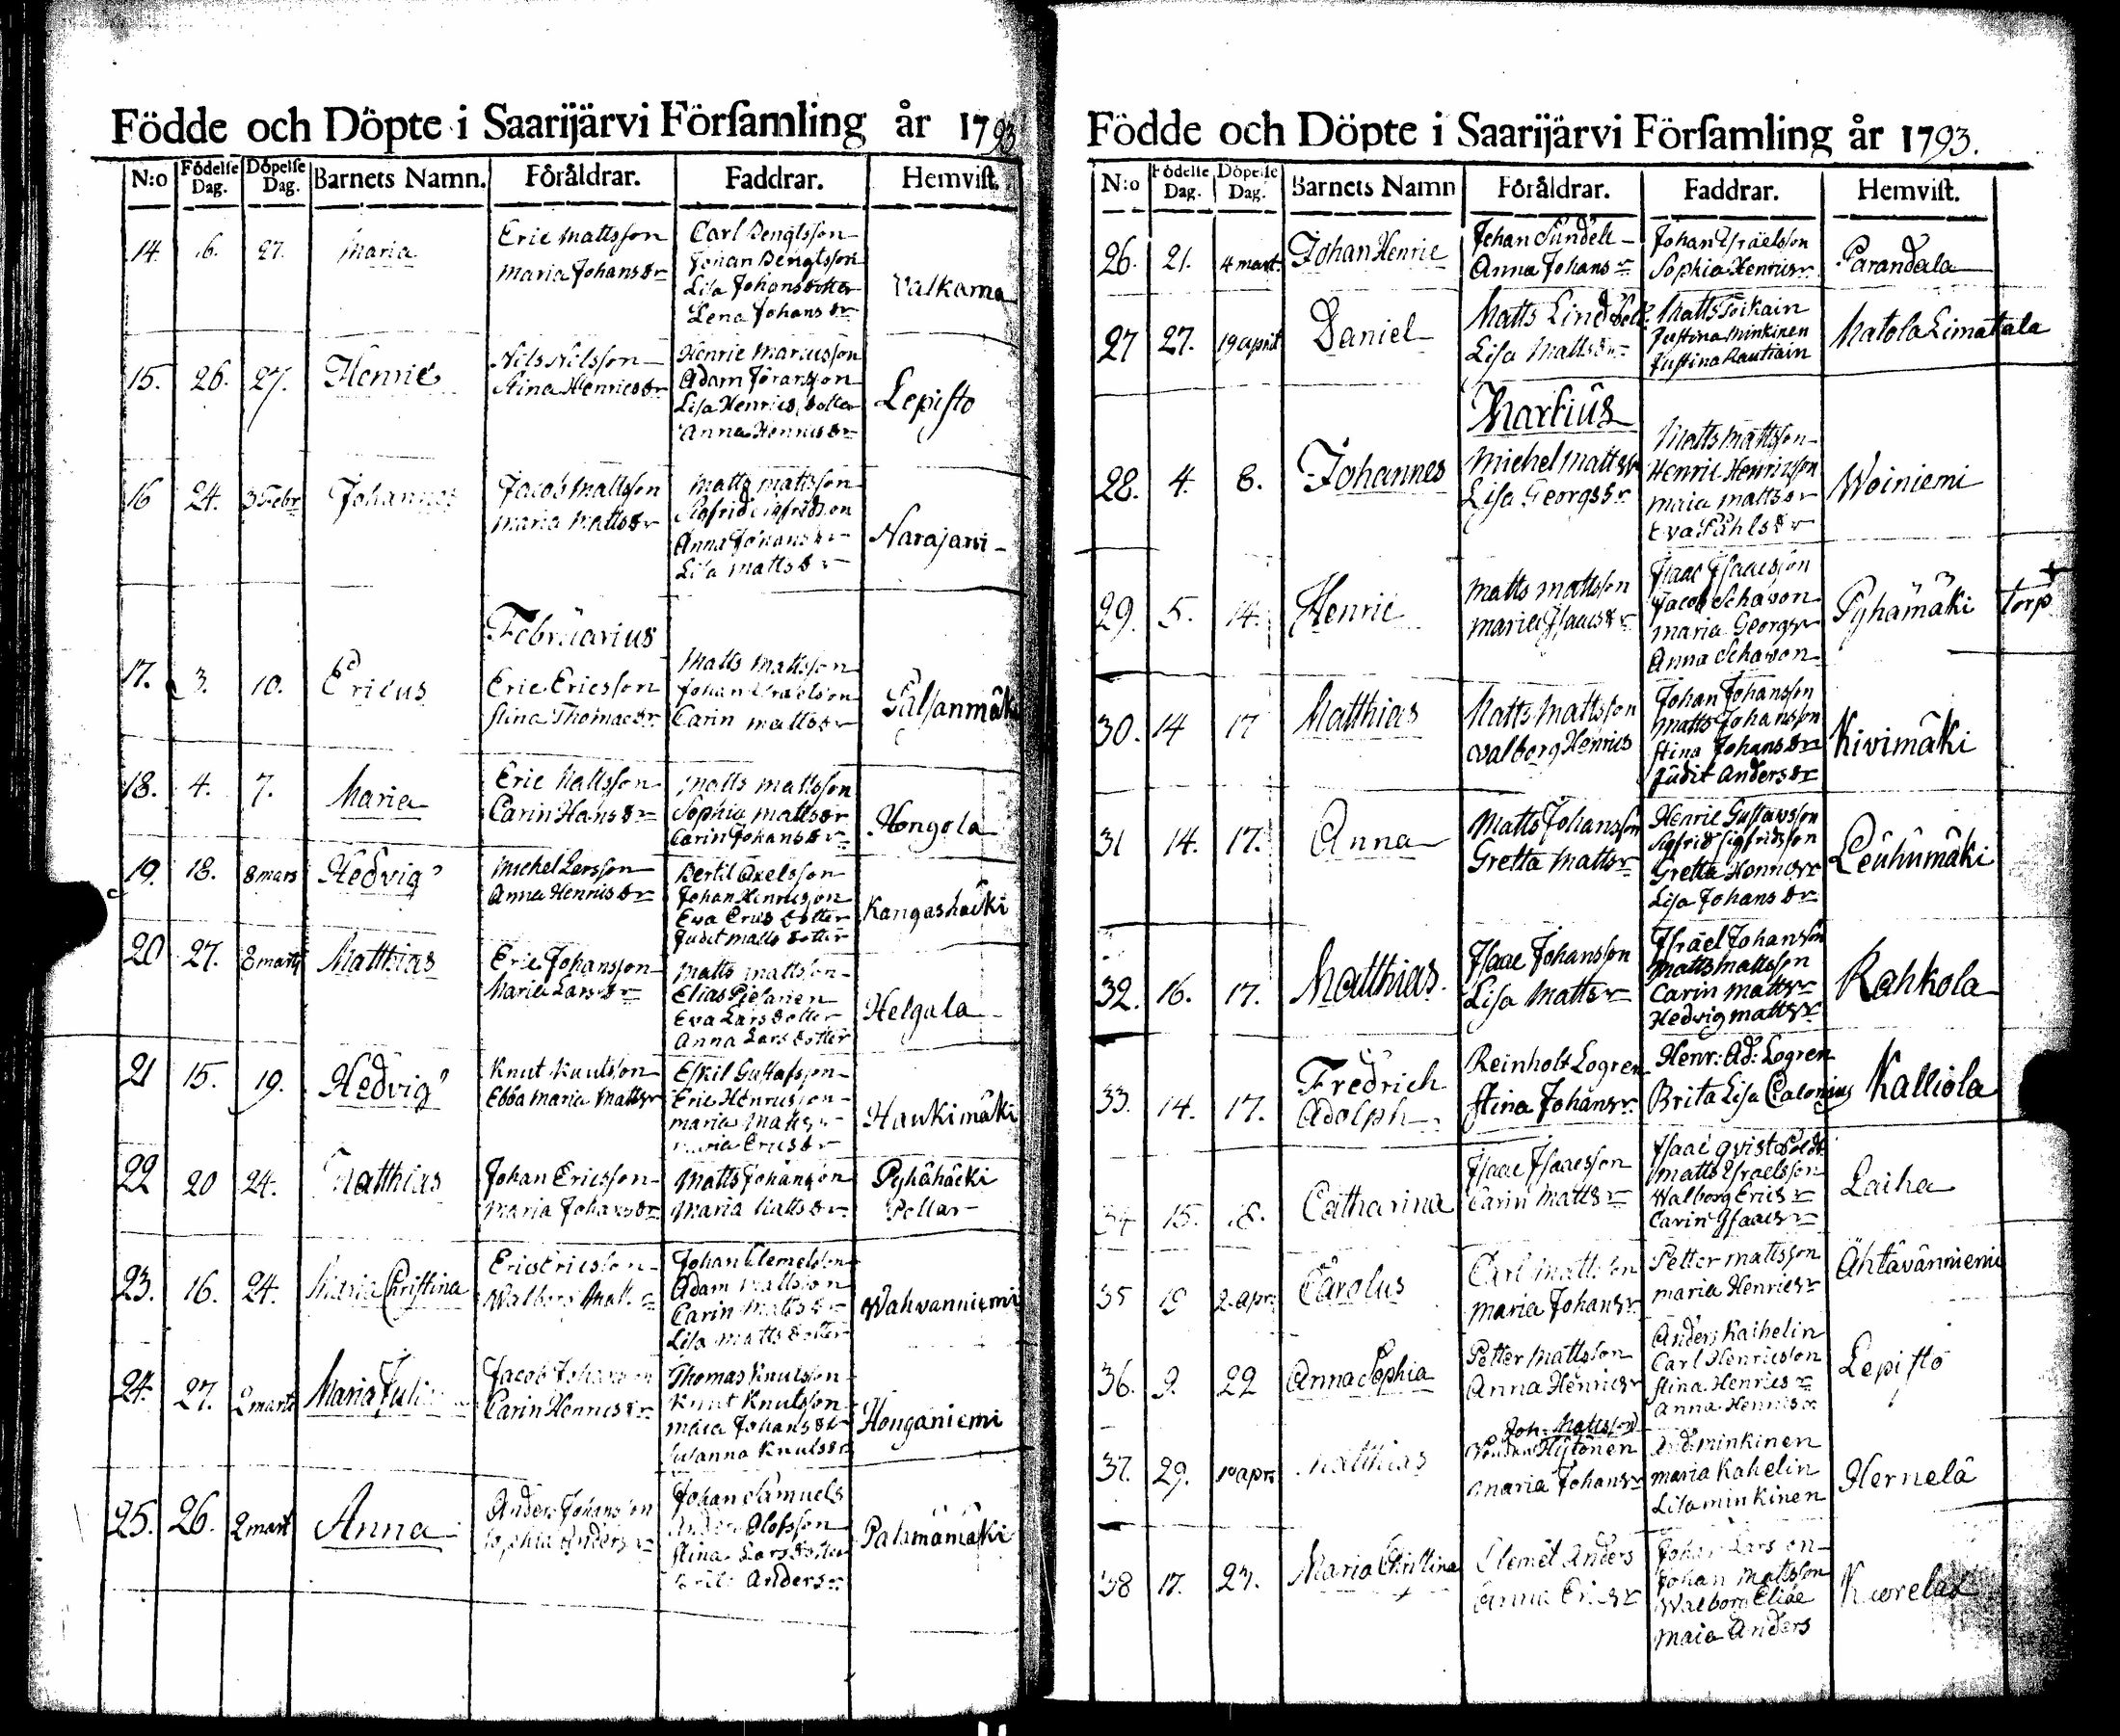 Födde och Döpte i Saarijärvi Församling år 1793
N:o Födelse Dag. Döpelse Dag. Barnets Namn. Föräldrar. Faddrar. Hemvist.
14 6. 27. Maria Eric Mattsson Carl Bengtsson
Maria Johansdr Johan Bengtsson
Lisa Johansdotter Valkama
Lena Johansdr
15. 26. 27. Henric Nils Nilsson Henric Marcusson
Stina Henricsdr Adam Göransson Lepisto
Lisa Henricsdotter
Anna Henricsdr
16 24. 3 Febr Johannes Jacob Mattsson Matts Mattsson
Maria Mattsdr Sigfrid Sigfridson Narajarvi
Anna Johansdr
Lisa Mattsdr
Februarius
17. 3. 10. Ericus Eric Ericsson Matts Mattsson
Stina Thomaedr Johan Israelsson
Carin Mattsdr
18. 4. 7. Maria Eric Mattsson Matts Mattsson
Carin Hansdr Sophia Mattsdr Hongola
Carin Johansdr
19. 18. 8 mars Hedvig Michel Larsson Bertil Axelsson
Anna Henricsdr Johan Henricsson Kangashäcki
Eva Ericsdotter
Judit Mattsdotter
20 27. 8 marti Matthias Eric Johansson Matts Mattsson
Maria Larsdr Elias Piesanen Helgala
Eva Larsdotter
Anna Larsdotter
21 15. 19. Hedvig Knut Knutsson Eskil Gustafsson
Ebba Maria Mattsr Eric Henricsson Haukimäki
Maria Mattsr
Maria Ericsdr
22 20 24. Matthias Johan Ericsson Matts Johansson Pyhähäcki
Maria Johansdr Maria Mattsdr
23. 16. 24. Maria Christina Eric Ericsson Johan Clemetsson
Walborg Matt Adam Mattsson Wahvanniemi
Carin Mattsdr
Lisa Mattsdotter
24. 27. 2 marti Maria Juli Jacob Johansson Thomas Knutsson
Carin Henricsdr Knut Knutsson Honganiemi
Maia Johansdr
Susanna Knutsdr
25. 26. 2 mart Anna Anders Johansson Johan Samuels
Sophia Andersr Anders Olofsson Palamämäki
Stina Larsdotter
Andersr
Födde och Döpte i Saarijärvi Församling år 1793.
N:o Födelse Dag. Döpelse Dag. Barnets Namn Föräldrar. Faddrar. Hemvist.
26. 21. 4 mart. Johan Henric Johan Sundell Johan Israelsson Parandala
Anna Johansr Sophia Henricsr
27 27. 19 april Daniel Matts Lindsell Matts Toikain Matola Limattala
Lisa Mattsdr Justina Minkinen
Justina Rautiain
Martius
28. 4. 8. Johannes Michel Mattsr Matts Mattsson Woiniemi
Lisa Georgsdr Henric Henricsson
Maia Mattsdr
Eva Påhlsdr
29. 5. 14. Henric Matts Mattsson Isaac Isaacsson Pyhämäki torp
Maria Isaacsdr Jacob Schavon
Maria Georgsr
Anna Schavon
30. 14 17 Matthias Matts Mattsson Johan Johansson Kivimäki
Walborg Henrics Matts Johansson
Stina Johansdr
Judit Andersdr
31 14. 17. Anna Matts Johansson Henric Gustavsson Leuhumäki
Gretta Mattsr Sigfrid Sigfridsson
Gretta Henricsr
Lisa Johansdr
32. 16. 17. Matthias. Isaac Johansson Israel Johansson Rahkola
Lisa Mattsr Matts Mattsson
Carin Mattsr
Hedvig Mattsr
33. 14. 17. Fredrich Adolph Reinholt Logren Henr: Ad: Logren Kalliola
Stina Johansr Brita Lisa Calonius
34 15. 18. Catharina Isaac Isaacsson Isaac Qvist Soldt Laiha
Carin Mattsr Matts Israelsson
Walborg Ericsr
Carin Isaacsr
35 19 2. apr. Carolus Carl Mattsson Petter Mattsson Ähtävänniemi
Maria Johansr Maria Henricsr
36. 9. 22 Anna Sophia Petter Mattsson Anders Kaihelin Lepistö
Anna Henricsr Carl Henricsson
Stina Henricsr
Anna Henricsr
37. 29. 10 apr. Matthias Joh. Mattsson And. Minkinen Hernelä
Hytönen Maria Kahelin
Maria Johansr Lisa Minkinen
38 17. 27. Maria Christina Clemet Anders Johan Larsson
Anna Ericsr Johan Mattsson
Walborg Eliae
Maia Anders